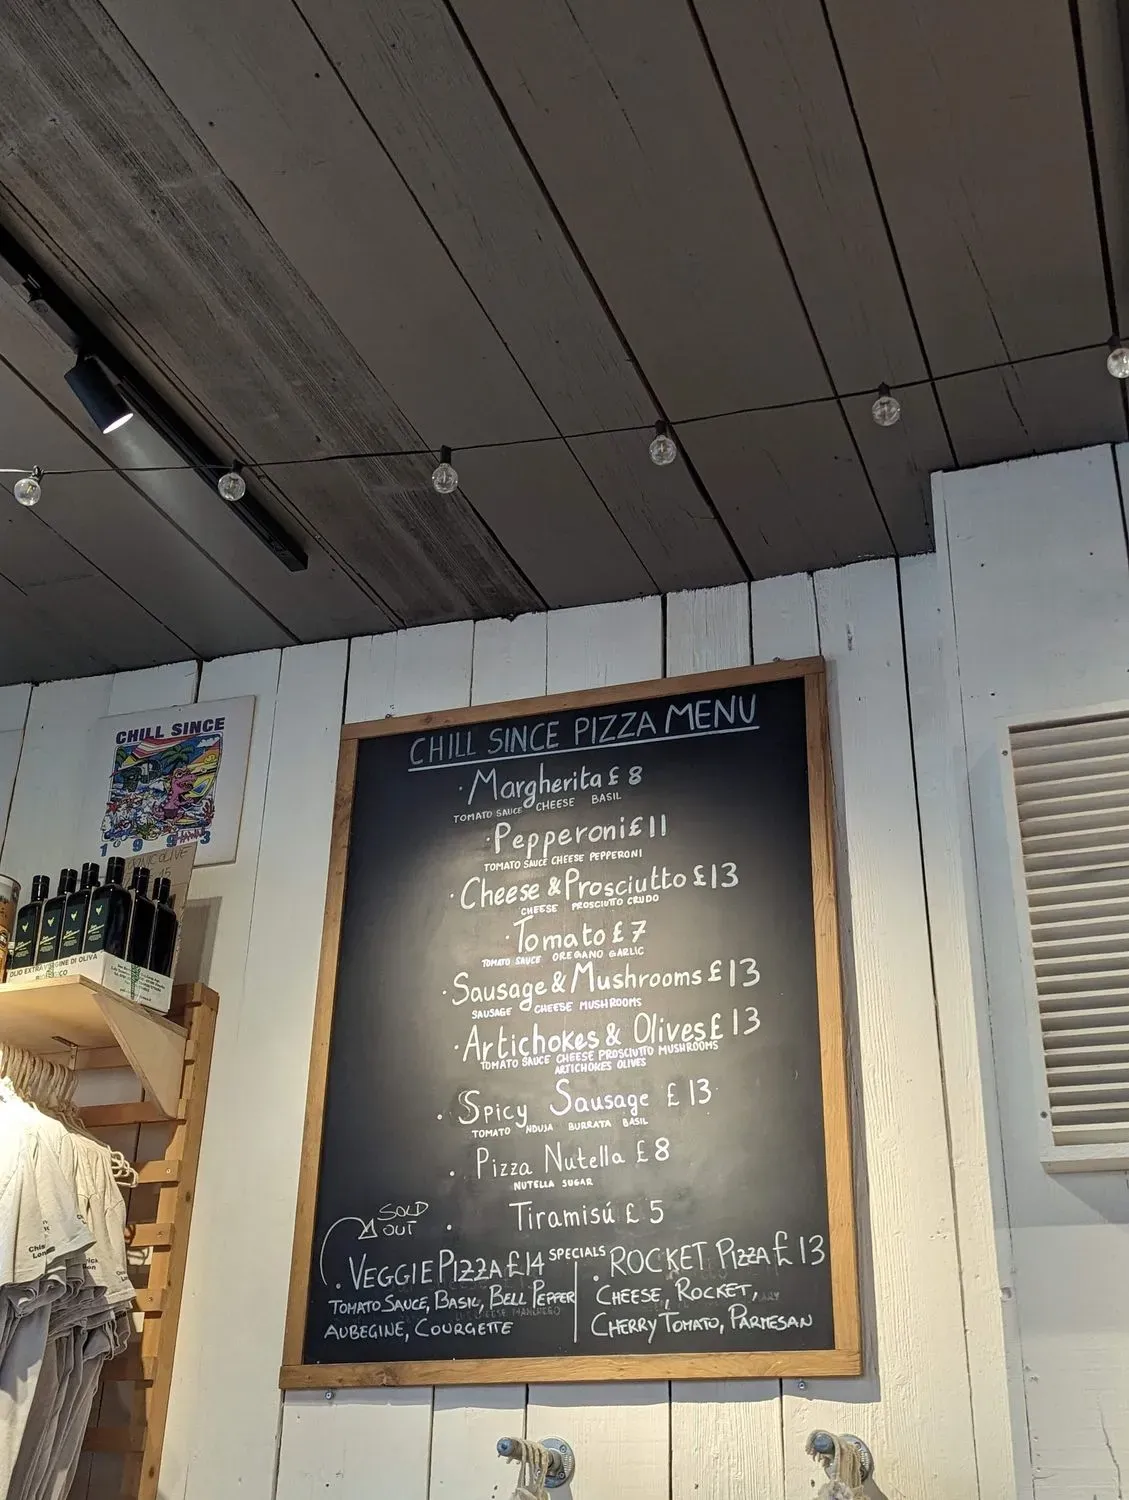 CHILL SINCE PIZZA MENU
· Margherita £ 8
TOMATO SAUCE CHEESE BASIL
· Pepperoni £ 11
TOMATO SAUCE CHEESE PEPPERONI
· Cheese & Prosciutto £ 13
CHEESE PROSCIUTTO CRUDO
· Tomato £ 7
TOMATO SAUCE OREGANO GARLIC
· Sausage & Mushrooms £ 13
SAUSAGE CHEESE MUSHROOMS
· Artichokes & Olives £ 13
TOMATO SAUCE CHEESE PROSCIUTTO MUSHROOMS
ARTICHOKES OLIVES
· Spicy Sausage £ 13
TOMATO NDUJA BURRATA BASIL
· Pizza Nutella £ 8
NUTELLA SUGAR
· Tiramisú £ 5
SOLD
OUT
SPECIALS
· VEGGIE PIZZA £14
TOMATO SAUCE, BASIL, BELL PEPPER
AUBEGINE, COURGETTE
· ROCKET PIZZA £ 13
CHEESE, ROCKET,
CHERRY TOMATO, PARMESAN
CHILL SINCE
1993
OLIO EXTRAVERGINE DI OLIVA